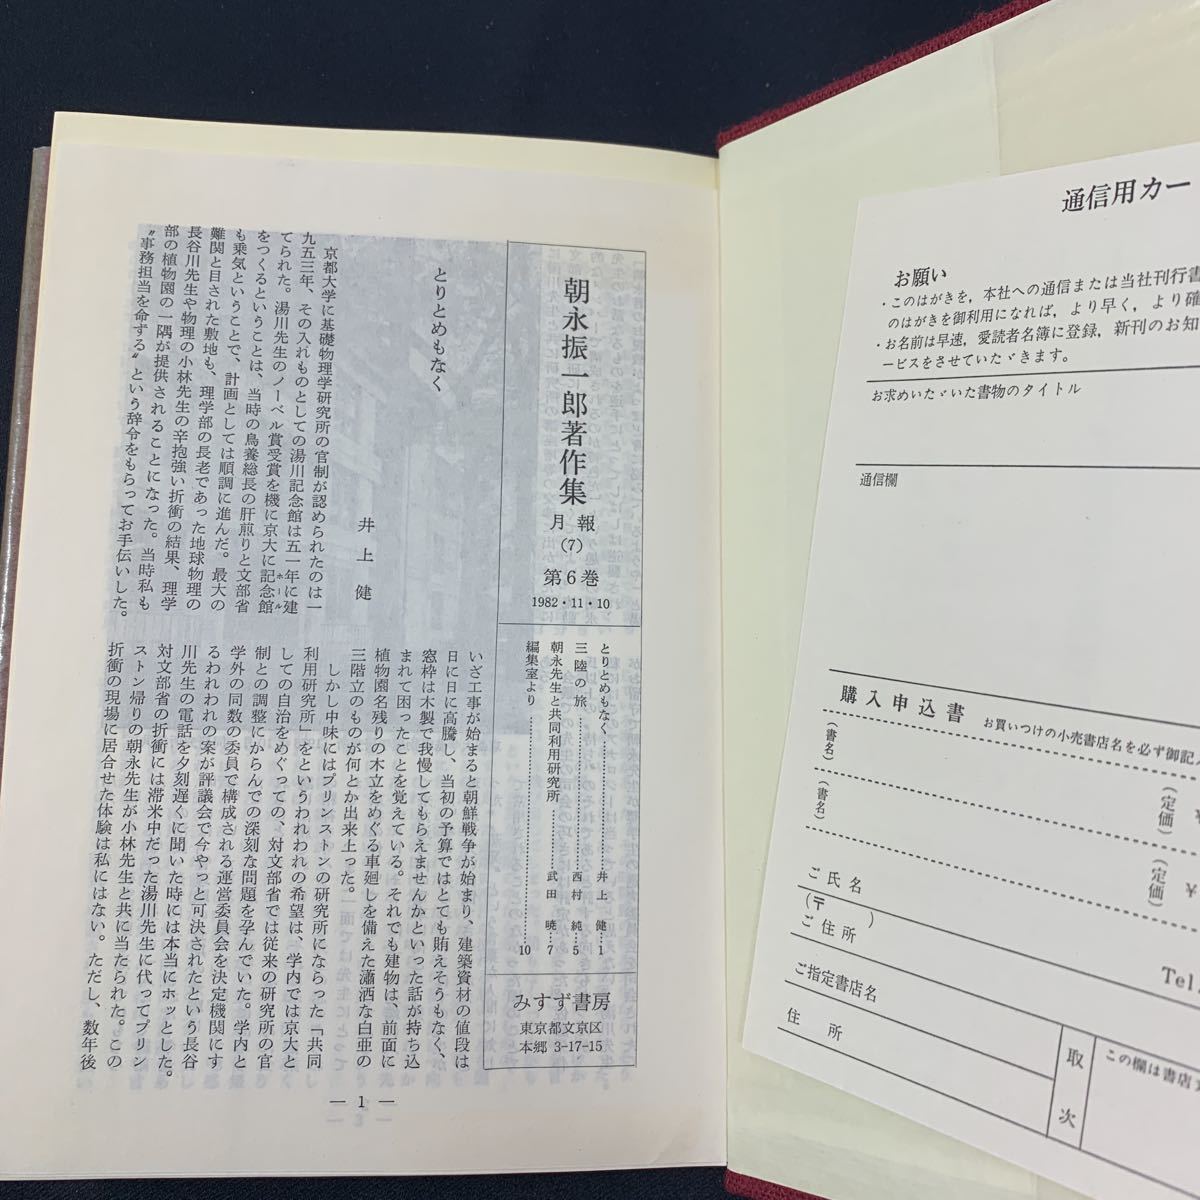 朝永振一郎著作集
月報
(7)
第6巻
1982・11・10
とりとめもなく………井上 健…1
三陸の旅………西村 純…5
朝永先生と共同利用研究所………武田 暁…7
編集室より………10
みすず書房
東京都文京区
本郷 3-17-15
とりとめもなく
井上 健
京都大学に基礎物理学研究所の官制が認められたのは一
九五三年、その入れものとしての湯川記念館は五一年に建
てられた。湯川先生のノーベル賞受賞を機に京大に記念館
ホール
をつくるということは、当時の鳥養総長の肝煎りと文部省
も乗気ということで、計画としては順調に進んだ。最大の
難関と目された敷地も、理学部の長老であった地球物理の
長谷川先生や物理の小林先生の辛抱強い折衝の結果、理学
部の植物園の一隅が提供されることになった。当時私も
〝事務担当を命ずる〟という辞令をもらってお手伝いした。
いざ工事が始まると朝鮮戦争が始まり、建築資材の値段は
日に日に高騰し、当初の予算ではとても賄えそうもなく、
窓枠は木製で我慢してもらえませんかといった話が持ち込
まれて困ったことを覚えている。それでも建物は、前面に
植物園名残りの木立をめぐる車廻しを備えた瀟洒な白亜の
三階立のものが何とか出来上った。
しかし中味にはプリンストンの研究所にならった「共同
利用研究所」をというわれわれの希望は、学内では京大と
しての自治をめぐっての、対文部省では従来の研究所の官
制との調整にからんでの深刻な問題を孕んでいた。学内と
学外の同数の委員で構成される運営委員会を決定機関にす
るわれわれの案が評議会で今やっと可決されたという長谷
川先生の電話を夕刻遅くに聞いた時には本当にホッとした。
対文部省の折衝には滞米中だった湯川先生に代ってプリン
ストン帰りの朝永先生が小林先生と共に当たられた。この
折衝の現場に居合せた体験は私にはない。ただし、数年後
— 1 —
通信用カー
お願い
・このはがきを，本社への通信または当社刊行書
のはがきを御利用になれば，より早く，より確
・お名前は早速，愛読者名簿に登録，新刊のお知
ービスをさせていたゞきます。
お求めいたゞいた書物のタイトル
通信欄
購入申込書 お買いつけの小売書店名を必ず御記入
(書名)
(定価) ¥
(書名)
(定価) ¥
ご氏名
(〒 )
ご住所
Tel.
ご指定書店名
住 所
取次
この欄は書店